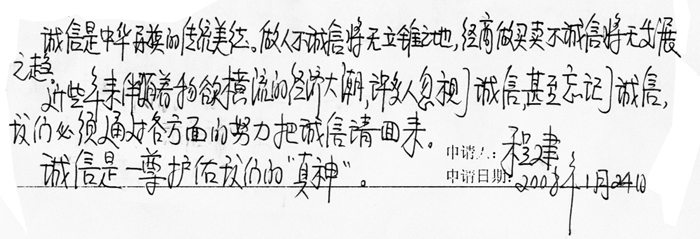 诚信是中华民族的传统美德。做人不诚信将无立锥之地,经商做买卖不诚信将无发展
之趋。
这些年来伴随着物欲横流的经济大潮,许多人忽视了诚信,甚至忘记了诚信,
我们必须通过各方面的努力把诚信请回来。
诚信是一尊护佑我们的“真神”。
申请人: 程建
申请日期: 2008年1月24日